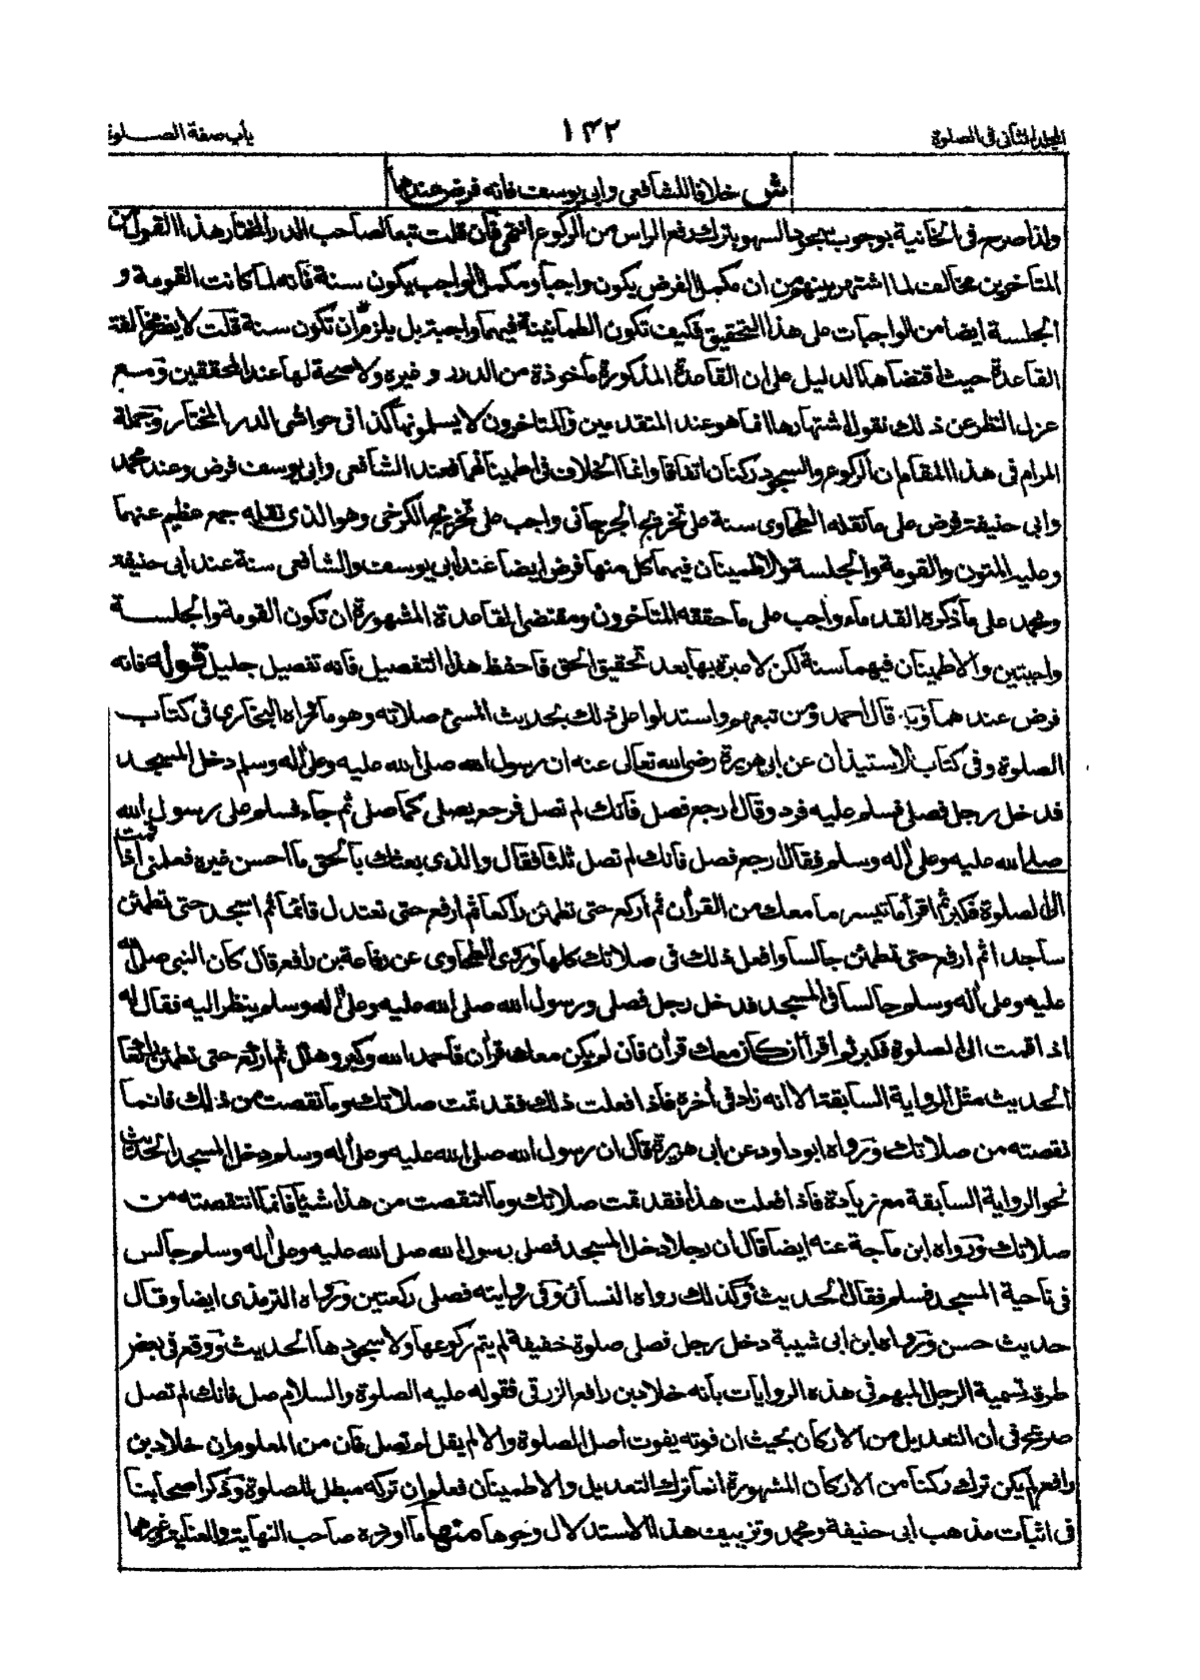 المجلد الثاني في الصلوة
١٣٢
باب صفة الصلوة
ش خلافا للشافعي وابي يوسف فانه فرض عندهما
ولذا صرح في الخانية بوجوب سجود السهو بترك رفع الراس من الركوع انتهى فان قلت تبعا لصاحب الدر المختار هذا القول من
المتاخرين مخالف لما اشتهر بينهم من ان مكمل الفرض يكون واجبا ومكمل الواجب يكون سنة فانه لما كانت القومة و
الجلسة ايضا من الواجبات على هذا التحقيق فكيف تكون الطمانينة فيهما واجبة بل يلزم ان تكون سنة قلت لا يضر مخالفة
القاعدة حيث اقتضاها الدليل على ان القاعدة المذكورة ماخوذة من الدرر وغيره ولا صحة لها عند المحققين ومع
عزل النظر عن ذلك نقول اشتهارها انما هو عند المتقدمين والمتاخرون لا يسلمونها كذا في حواشي الدر المختار وجملة
المرام في هذا المقام ان الركوع والسجود ركنان اتفاقا وانما الخلاف في اطمينانهما فعند الشافعي وابي يوسف فرض وعند محمد
وابي حنيفة فرض على ما نقله الطحاوي سنة على تخريج الجرجاني واجب على تخريج الكرخي وهو الذي نقله جمع عظيم عنهما
وعليه المتون والقومة والجلسة والاطمينان فيهما كل منها فرض ايضا عند ابي يوسف والشافعي سنة عند ابي حنيفة
ومحمد على ما ذكره القدماء واجب على ما حققه المتاخرون ومقتضى القاعدة المشهورة ان تكون القومة والجلسة
واجبتين والاطمينان فيهما سنة لكن لا عبرة بها بعد تحقيق الحق فاحفظ هذا التفصيل فانه تفصيل جليل قوله فانه
فرض عندهما وبه قال احمد ومن تبعهم واستدلوا على ذلك بحديث المسئ صلاته وهو ما اخرجه البخاري في كتاب
الصلوة وفي كتاب الاستيذان عن ابي هريرة رضى الله تعالى عنه ان رسول الله صلى الله عليه وعلى اله وسلم دخل المسجد
فدخل رجل فصلى فسلم عليه فرد وقال ارجع فصل فانك لم تصل فرجع يصلى كما صلى ثم جاء فسلم على رسول الله
صلى الله عليه وعلى اله وسلم فقال ارجع فصل فانك لم تصل ثلثا فقال والذي بعثك بالحق ما احسن غيره فعلمني اذا قمت
الى الصلوة فكبر ثم اقرأ ما تيسر ما معك من القرأن ثم اركع حتى تطمئن راكعا ثم ارفع حتى تعتدل قائما ثم اسجد حتى تطمئن
ساجدا ثم ارفع حتى تطمئن جالسا وافعل ذلك في صلاتك كلها وروى الطحاوي عن رفاعة بن رافع قال كان النبي صلى الله
عليه وعلى اله وسلم جالسا في المسجد فدخل رجل فصلى ورسول الله صلى الله عليه وعلى اله وسلم ينظر اليه فقال له
اذا قمت الى الصلوة فكبر ثم اقرأ ان كان معك قرأن فان لم يكن معك قرأن فاحمد الله وكبر وهلل ثم اركع حتى تطمئن راكعا
الحديث مثل الرواية السابقة الا انه زاد في أخره فاذا فعلت ذلك فقد تمت صلاتك وما نقصت من ذلك فانما
نقصته من صلاتك ورواه ابو داود عن ابي هريرة قال ان رسول الله صلى الله عليه وعلى اله وسلم دخل المسجد الحديث
نحو الرواية السابقة مع زيادة فاذا فعلت هذا فقد تمت صلاتك وما انتقصت من هذا شيئا فانما انتقصته من
صلاتك ورواه ابن ماجة عنه ايضا قال ان رجلا دخل المسجد فصلى ورسول الله صلى الله عليه وعلى اله وسلم جالس
في ناحية المسجد فسلم فقال الحديث وكذلك رواه النسائي وفي روايته فصلى ركعتين ورواه الترمذي ايضا وقال
حديث حسن ورواه ابن ابي شيبة دخل رجل فصلى صلوة خفيفة لم يتم ركوعها ولا سجودها الحديث ووقع في بعض
طرقه تسمية الرجل المبهم في هذه الروايات بانه خلاد بن رافع الزرقي فقوله عليه الصلوة والسلام صل فانك لم تصل
صريح في أن التعديل من الاركان بحيث ان فوته يفوت اصل الصلوة والا لم يقل لم تصل فان من المعلوم ان خلاد بن
رافع لم يكن ترك ركنا من الاركان المشهورة انما ترك التعديل والاطمينان فعلم ان تركه مبطل للصلوة وذكر اصحابنا
في اثبات مذهب ابي حنيفة ومحمد وتزييف هذا الاستدلال وجوها منها ما اورده صاحب النهاية والعناية وغيرهما